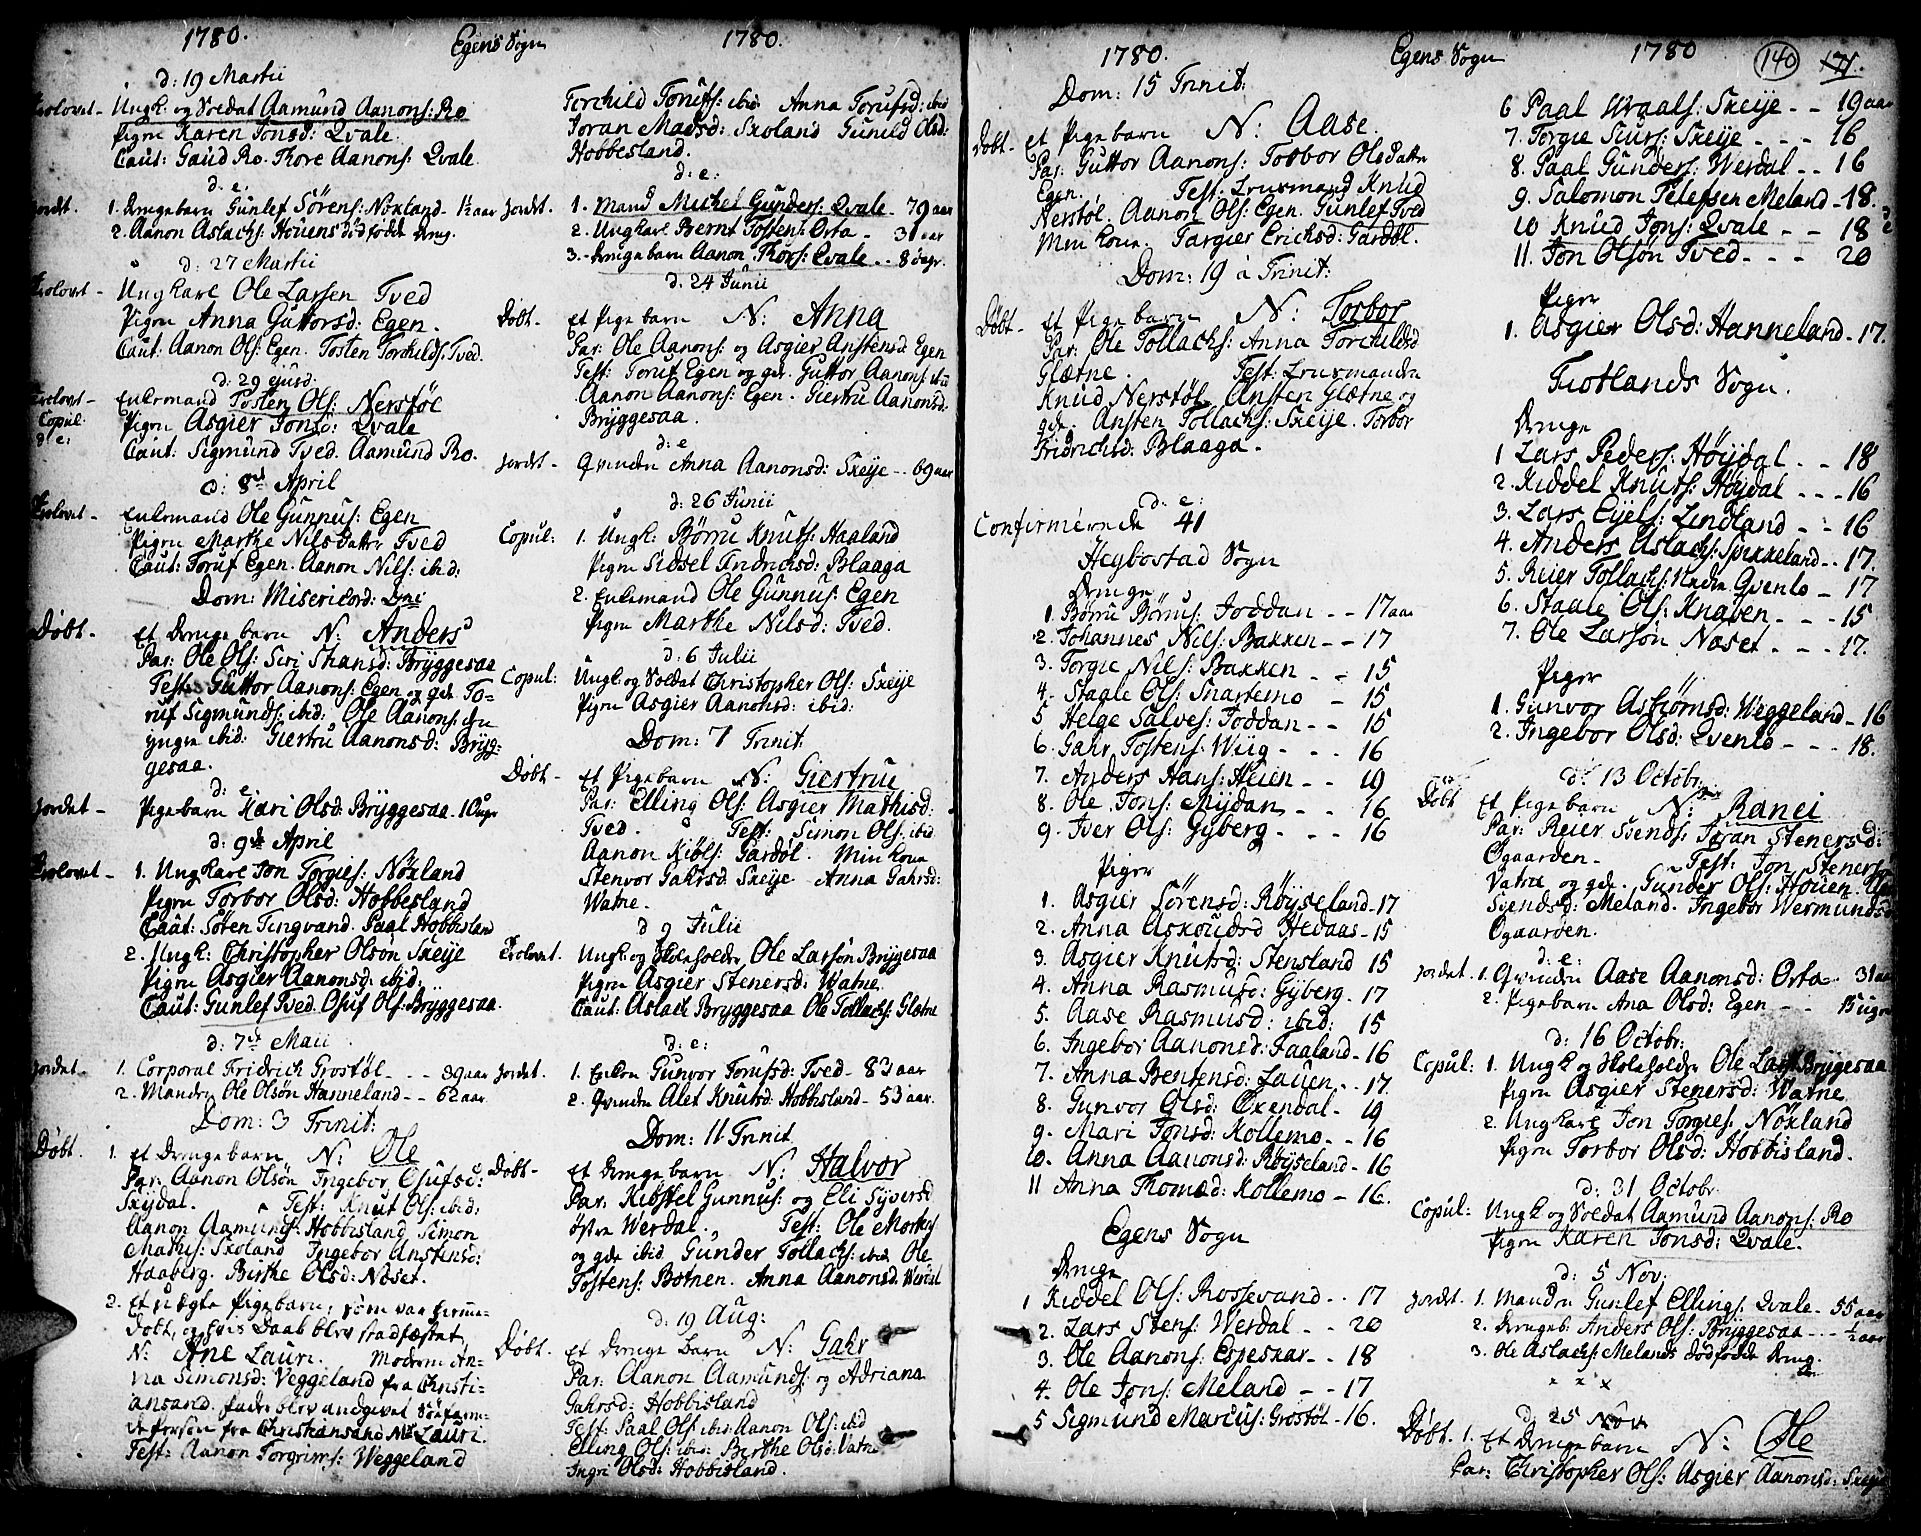 1780. Egens Sogn 1780.
d: 19 Martii
Trolovet - Ungk. og Soldat Aamund Aanons: Ro
Pigen Karen Jonsd: Qvale.
Caut: Gaud Ro. Thore Aanons: Qvale.
d: e:
Jordet. 1. Drengebarn Gunlef Sörens: Nöxland - 1½ aar
2. Aanon Aslachs: Houens dødfødde dreng.
d: 27 Martii
Trolovet - Ungkarl Ole Larsen Tved
Pigen Anna Guttorsd: Egen.
Caut: Aanon Ols: Egen. Tosten Torchilds: Tved.
d: 29 ejusd:
Trolovet - Enkemand Tosten Ols: Nerstöl
Copul: Pigen Asgier Jonsd: Qvale
d: e: Caut: Sigmund Tved. Aamund Ro.
d: 8de April
Trolovet - Enkemand Ole Gunnus: Egen
Pigen Marthe Nils Datter Tved
Caut: Toruf Egen. Aanon Nils: ibid:
Dom: Misericord: Dni
Döbt - Et Drengebarn N: Anders
Par: Ole Ols: Siri Stiansd: Bryggesaa
Test: Guttor Aanons: Egen og gde To=
ruf Sigmunds: ibid. Ole Aanons: den
yngre ibid: Giertru Aanonsd: Brygg=
gesaa.
d: e:
Jordet - Pigebarn Kari Olsd: Bryggesaa. 10 ugr
d: 9de April
Trolovet - 1. Ungkarl Jon Torgies: Nöxland
Pigen Torbor Olsd: Hobbesland
Caut: Sören Tingvand. Paal Hobbisland
2. Ungk: Christopher Olsön Sxeije
Pigen Asgier Aanonsd: ibid.
Caut: Gunlef Tved. Osuf Ols: Bryggesaa.
d: 7de Maii
Jordet - 1. Corporal Fridrich Grostöl - - - 39 aar
2. Manden Ole Olsön Hanneland - - 62 aar
Dom: 3 Trinit:
Döbt. 1. et Drengebarn N: Ole
Par: Aanon Olsön Ingebor Osufsd:
Sxeijdal. Test: Knut Ols: ibid:
Aanon Aamunds: Hobbisland Simon
Mathis: Skoland Ingebor Anstensd:
Haaberg. Birthe Olsd: Næset.
2. Et uægte Pigebarn, som var hieme=
döbt, og hvis Daab blev stadfæstet
N: Ane Lauri. Moderen An=
na Simonsd: Veggeland fra Christi=
ansand. fader blev andgivet Söefaren=
de person fra Christiansand Nils Lauri.
Test: Aanon Torgrims: Veggeland
Torchild Torufs: ibid. Anna Torufsd: ibid
Joran Madsd: Skoland Gunild Olsd:
Hobbesland.
d: e:
Jordet. 1. Mand Michel Gunders: Qvale - 79 aar
2. Ungkarl Bernt Tostens: Orta - 31 aar
3. Drengebarn Aanon Thors: Qvale - - 8 dage.
d: 24 Junii
Döbt - et Pigebarn N: Anna
Par: Ole Aanons: og Asgier Anstensd: Egen
Test: Toruf Egen og gde. Guttor Aanons: ibid
Aanon Aanons: Egen. Giertru Aanonsd.
Bryggesaa.
d: e
Jordet - Qvinden Anna Aanonsd: Sxeije - - 69 aar
d: 26 Junii
Copul: 1. Ungk: Börru Knuts: Haaland
Pigen Sidsel Fridrichsd: Blaaga
2. Enkemand Ole Gunnus: Egen
Pigen Marthe Nilsd: Tved.
d: 6 Julii
Copul: Ungk. og Soldat Christopher Ols: Sxeije
Pigen Asgier Aanonsd: ibid:
Dom: 7 Trinit:
Döbt - et Pigebarn N: Giertrue
Par: Elling Ols: Asgier Mathisd:
Tved. Test: Simon Ols: ibid.
Aanon Kiöls: Gardöl. Min kone
Stenvor Gahrsd: Sxeije Anna Gahrsd:
Watne.
d 9 Julii
Trolovet. Ungk. og Holeholder Ole Larsön Bryggesaa
Pigen Asgier Stenersd: Watne.
Caut: Aslach Bryggesaa Ole Tollachs: Glætne
d: e:
Jordet. 1. Enken Gunvor Torufsd: Tved - 83 aar
2. Qvinden Alet Knutsd: Hobbisland - 53 aar.
Dom: 11 Trinit
Döbt - et Drengebarn N: Halvor
Par: Kibstel Gunnus: og Eli Syversd
östre Werdal. Test: Ole Mortens:
og gde ibid. Gunder Tollachs: ibid. Ole
Tostens: Botnen. Anna Aanonsd: Werdal
d: 19 Aug:
Döbt. et Drenge barn N: Gahr
Par: Aanon Aamunds: og Adriana
Gahrsd: Hobbisland
Test: Paal Ols: ibid: Aanon Ols: ibid
Elling Ols: ibid: Birthe Olsd: Vatne
Ingri Olsd: Hobbisland.
1780. Egens Sogn 1780 140 171.
Dom: 15 Trinit:
Döbt - et Pigebarn N: Aase.
Par: Guttor Aanons: Torbor Ols Datter
Egen. Test: Lensmand Knud
Nerstöl. Aanon Ols: Egen. Gunlef Tved
Min kone. Targier Ericksd: Gardöl.
Dom: 19 à Trinit:
Döbt - et Pigebarn N: Torbor
Par: Ole Tollachs: Anna Torchildsd
Glætne. Test: Lensmanden
Knud Nerstöl. Ansten Glætne og
gde. Ansten Tollachs: Sxeije. Torbor
Fridrichsd: Blaaga.
d: e:
Confirmerede 41
Heybostad Sogn
Drenge
1. Börru Börus: Joddan - - 17 aar
2. Johannes Nils: Bakken - - 17
3. Torgie Nils: Bakken - - 15
4. Staale Ols: Snartemo - 15
5 Helge Salves: Joddan - - 15
6. Gahr Tostens: Wiig - - - 16
7. Anders Hans: Heien - - 19
8. Ole Jons: Mydan - - 16
9. Iver Ols: Gyberg - - - 16
Piger
1. Asgier Sörensd: Röyseland - 17
2. Anna Askoudsd Hedaas - 15
3. Asgier Knutsd: Stensland 15
4. Anna Rasmusd: Gyberg - 17
5. Aase Rasmusd: ibid: 15
6. Ingebor Aanonsd: Faaland - 16
7. Anna Bentensd: Lauen - - 17.
8. Gunvor Olsd: Oxendal - 19
9. Mari Jonsd: Kollemo - - 16
10. Anna Aanonsd: Röyseland - 16
11 Anna Thomæd: Kollemo - 16.
Egens Sogn
Drenge
1 Kiddel Ols: Rossevand - - 17
2. Lars Stens: Werdal - - 20
3. Ole Aanons: Espeskar - - 18
4. Ole Jons: Meland - - 17
5 Sigmund Marcus: Grostöl - 16.
6 Paal Uvaals: Sxeije - - 19 aar
7. Torgie Siurs: Sxeije - - - 16
8. Paal Gunders: Werdal - - 16
9. Salomon Tellefsen Meland - 18.
10 Knud Jons: Qvale - - 18
11. Jon Olsön Tved - - - 20
Piger
1. Asgier Olsd: Hanneland - 17.
Fiotlands Sogn.
Drenge
1 Lars Peders: Höijdal - - 18
2. Kiddel Knuts: Höydal - - - 16
3. Lars Eyels: Lindland - - 16
4. Anders Aslachs: Spikkeland - - 17.
5. Reier Tollachs: Nedre Qvenlo - 17
6. Staale Ols: Knaben - - - 15
7. Ole Larsön Næset - - - 17.
Piger
1. Gunvor Asbiörnsd: Weggeland - 16
2. Ingebor Olsd: Qvenlo - - - 18.
d: 13 Octobr:
Döbt et Pigebarn N: Ranei
Par: Reier Svends: Joran Stenersd:
Ogaarden. Test: Jon Steners:
Vatne og gde. Gunder Ols: Houen.
Svendsd: Meland. Ingebor Wermundsd
Ogaarden.
d: e:
Jordet. 1. Qvinden Aase Aanonsd: Orta - 31 aar
2. Pigebarn Ana Olsd: Egen - - 15 ugr
d: 16 Octobr:
Copul: 1. Ungk og Holeholder Ole Lars: Bryggesaa
Pigen Asgier Stenersd: Watne
2. Ungkarl Jon Torgies: Nöxland
Pigen Torbor Olsd: Hobbisland.
d: 31 Octobr
Copul: Ungk og Soldat Aamund Aanons: Ro
Pigen Karen Jonsd: Qvale.
d: 5 Nov:
Jordet. 1. Manden Gunlef Ellings: Qvale - 55 aar
2. Drengeb: Anders Ols: Bryggesaa - - - ½ aar
3. Ole Aslachs: Melands dødfødde dreng.
x x x
d 25 Nov:
Döbt. 1. Et Drengebarn N: Ole
Par: Christopher Ols: Asgier Aanonsd: Sxeije